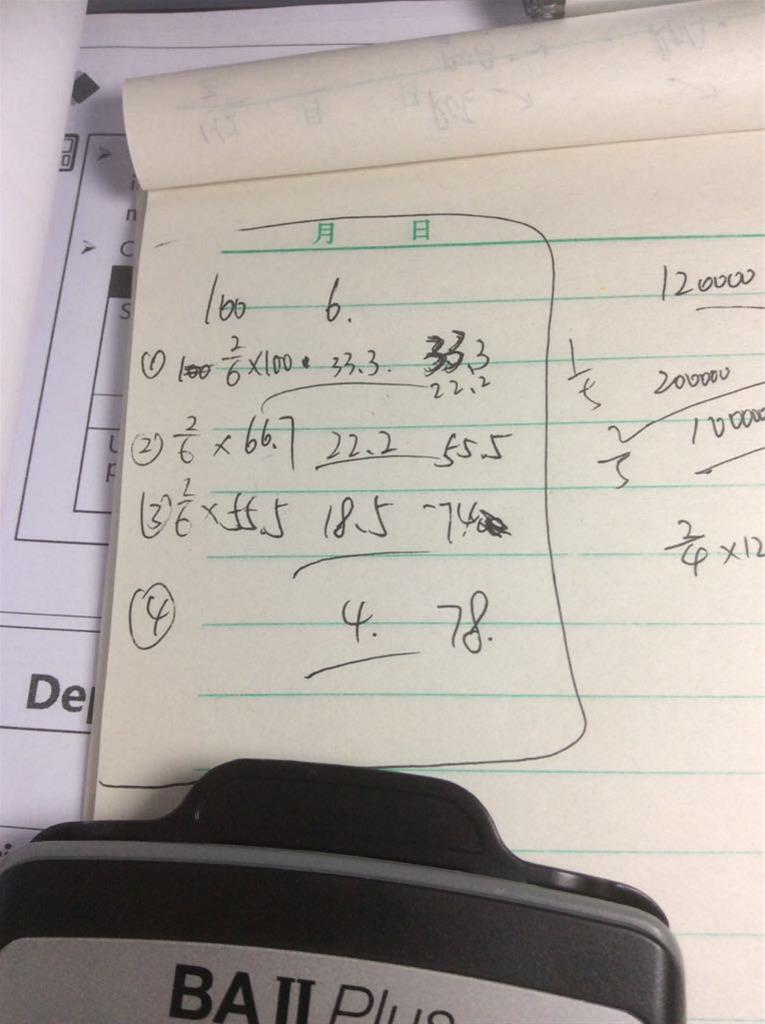 月 日
100 6.
120000
① 2/6 ×100 33.3. 33.3
22.2
1/5 200000
② 2/6 × 66.7 22.2 55.5
2/5 100000
③ 2/6 × 55.5 18.5 74
2/4 ×12
④ 4. 78.
Dep
BA II Plus